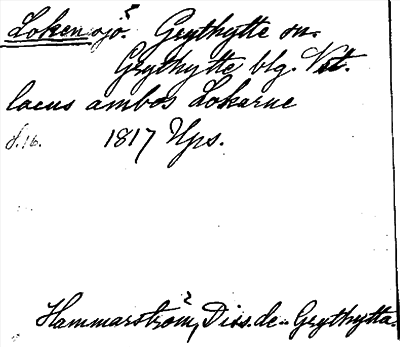 Loken sjö. Grythytte sn.
Grythytte blg. Vstl.
lacus ambos Lokarne
s. 16. 1817 Ups.
Hammarström, Diss. de Grythytta.